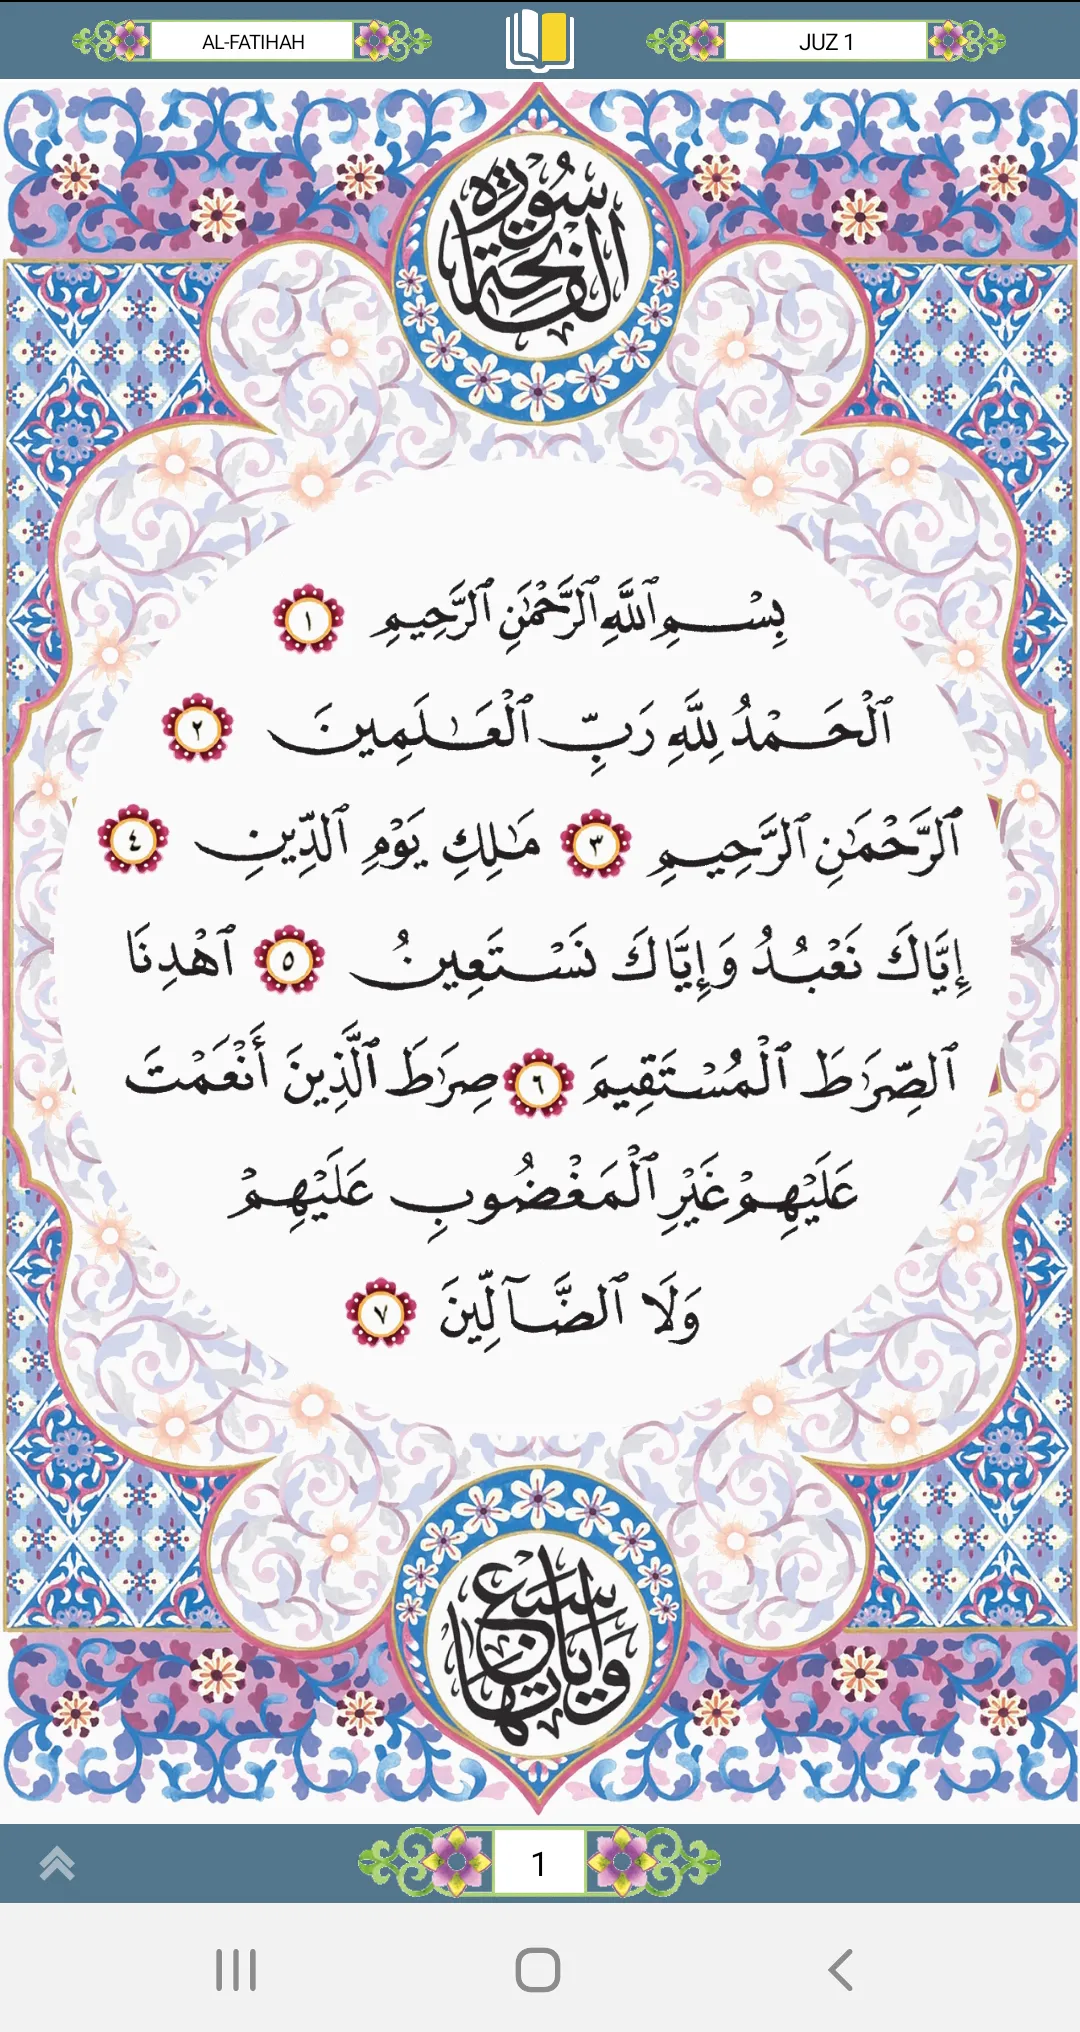 AL-FATIHAH
JUZ 1
سورة
الفاتحة
بِسْمِ ٱللَّهِ ٱلرَّحْمَٰنِ ٱلرَّحِيمِ ١
ٱلْحَمْدُ لِلَّهِ رَبِّ ٱلْعَٰلَمِينَ ٢
ٱلرَّحْمَٰنِ ٱلرَّحِيمِ ٣ مَٰلِكِ يَوْمِ ٱلدِّينِ ٤
إِيَّاكَ نَعْبُدُ وَإِيَّاكَ نَسْتَعِينُ ٥ ٱهْدِنَا
ٱلصِّرَٰطَ ٱلْمُسْتَقِيمَ ٦ صِرَٰطَ ٱلَّذِينَ أَنْعَمْتَ
عَلَيْهِمْ غَيْرِ ٱلْمَغْضُوبِ عَلَيْهِمْ
وَلَا ٱلضَّآلِّينَ ٧
وآياتها
سبع
1